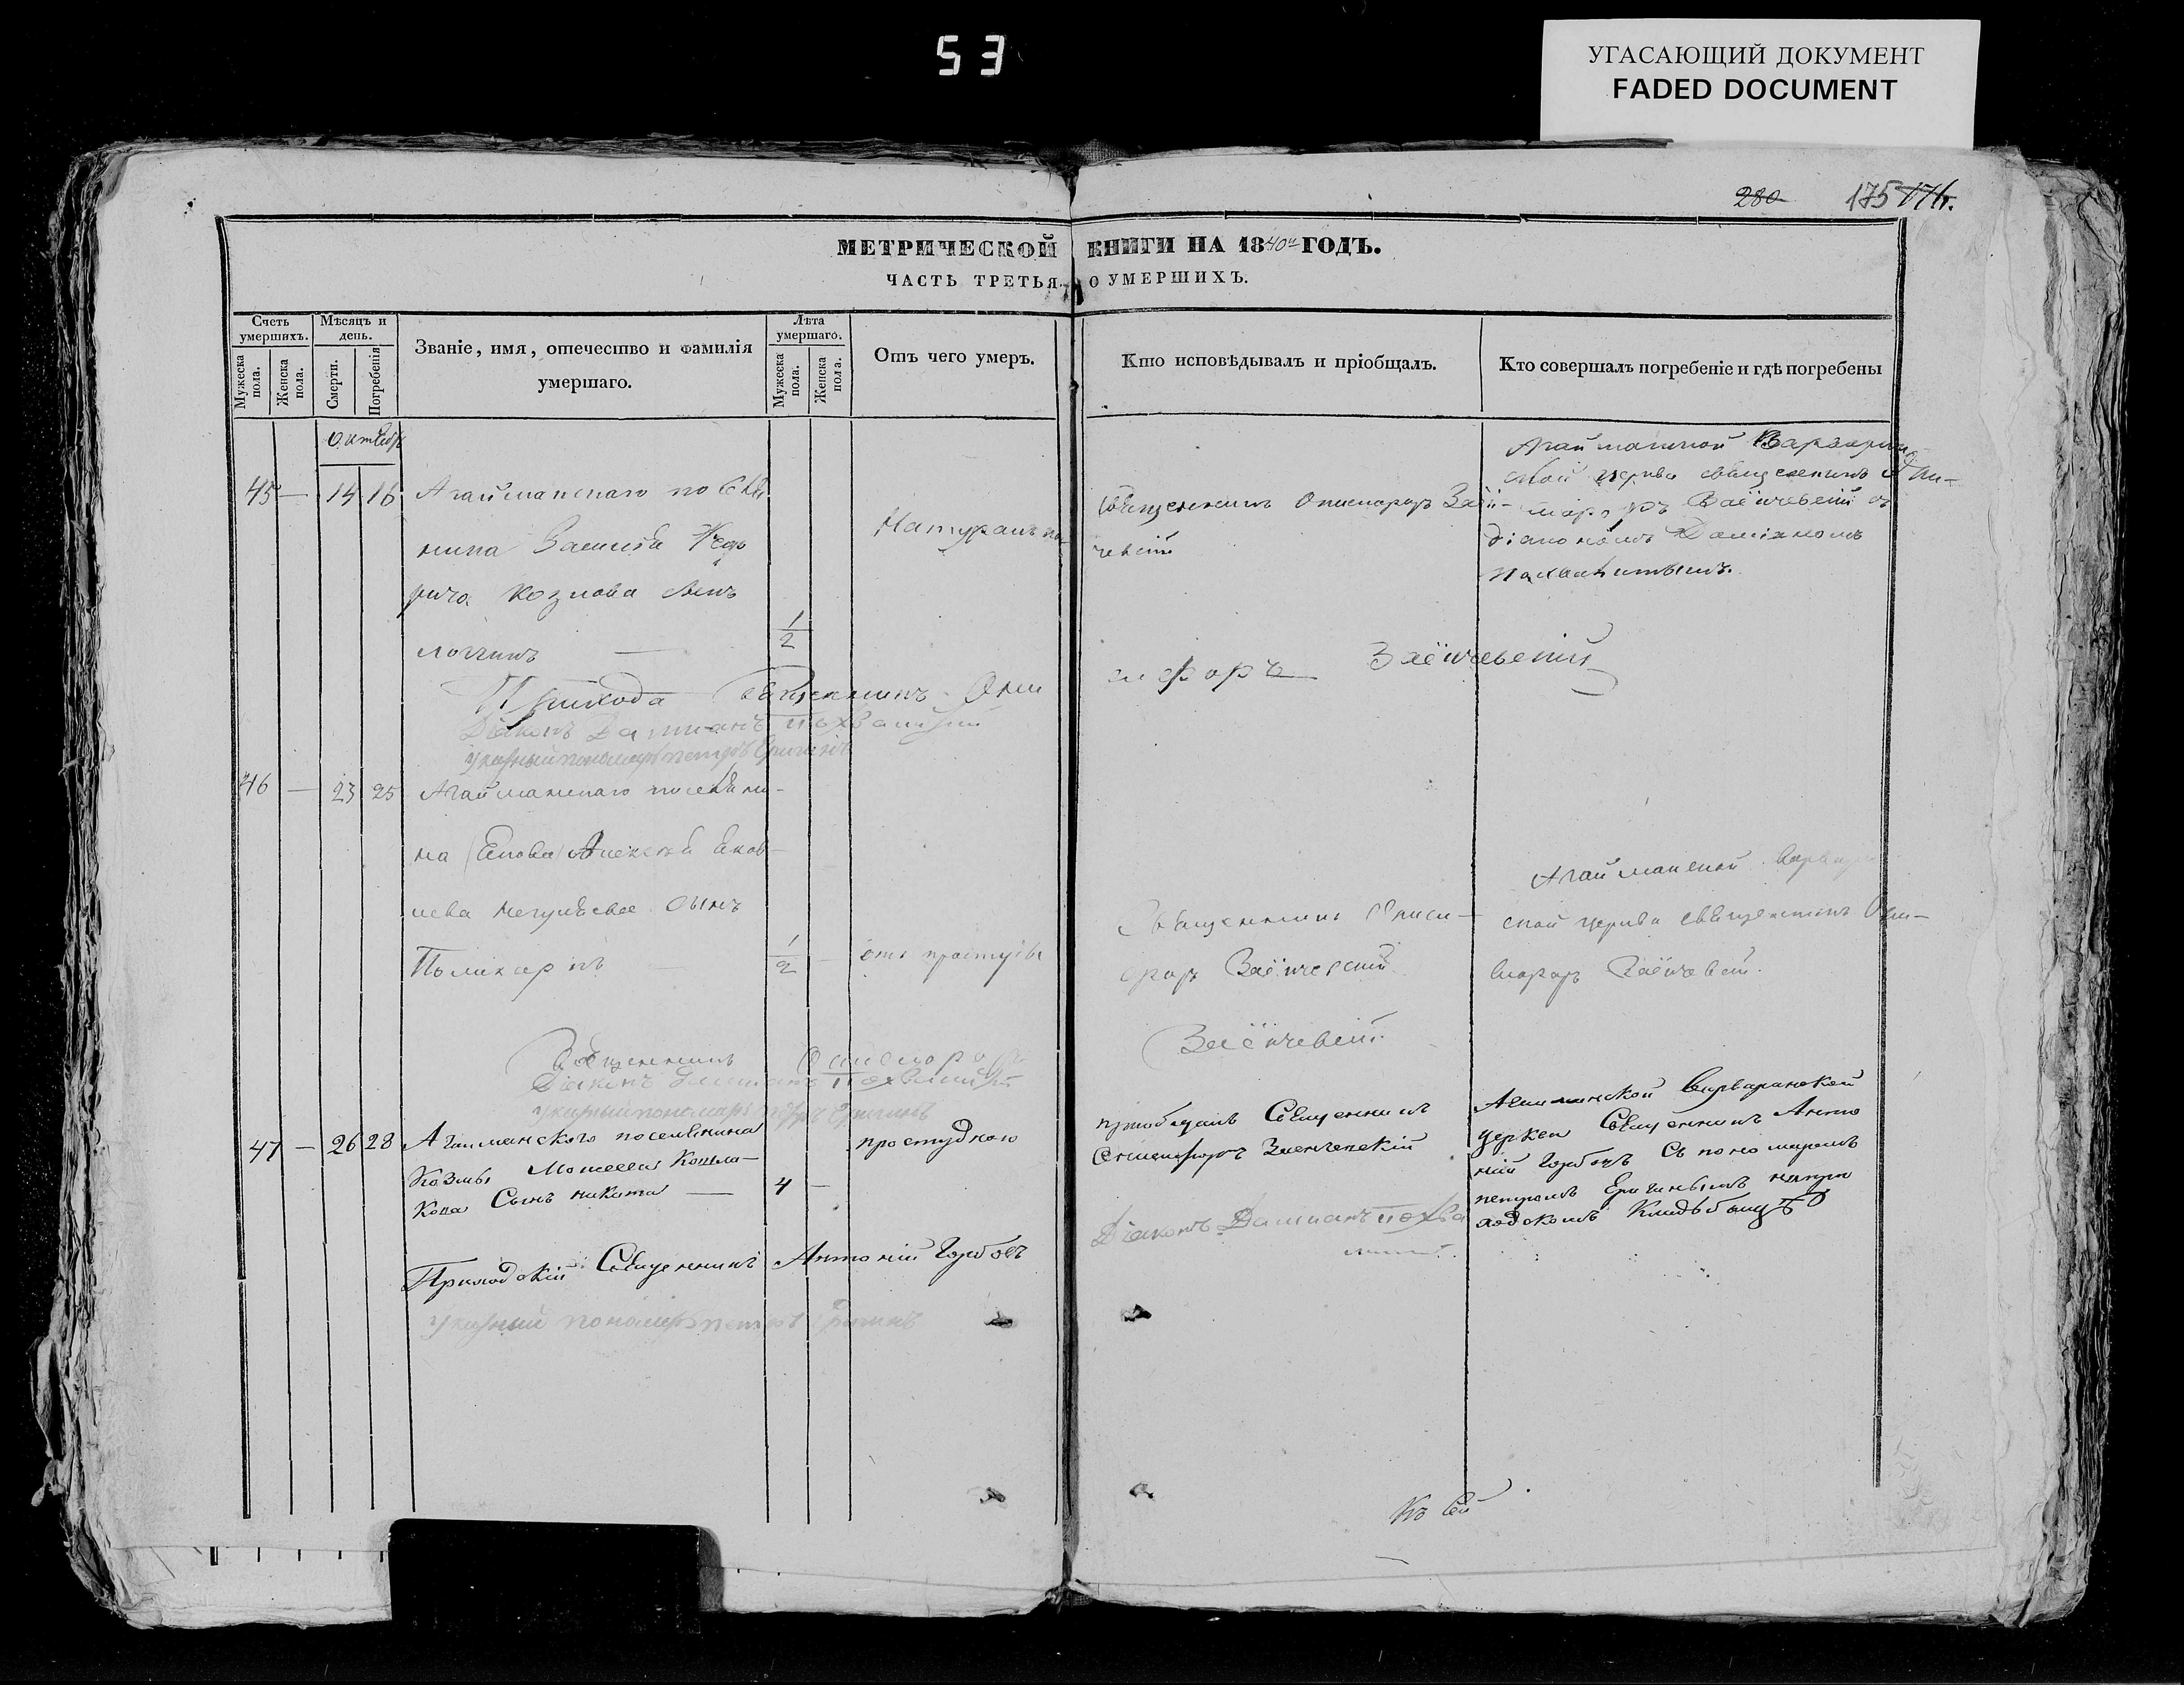 53
УГАСАЮЩИЙ ДОКУМЕНТ
FADED DOCUMENT
280 175 174.
МЕТРИЧЕСКОЙ КНИГИ НА 1840й ГОДЪ.
ЧАСТЬ ТРЕТЬЯ. О УМЕРШИХЪ.
Счетъ умершихъ.
Мужеска пола.
Женска пола.
Мѣсяцъ и день.
Смерти.
Погребенія
Званіе, имя, отечество и фамилія умершаго.
Лѣта умершаго.
Мужеска пола.
Женска пола.
Отъ чего умеръ.
Кто исповѣдывалъ и пріобщалъ.
Кто совершалъ погребеніе и гдѣ погребены
Октябрь
45 — 14 16 Агайманскаго поселя
нина Василія Ѳедо
рича Козлова сынъ
Логгинъ — 1/2
Натурально
Священникъ Онисифоръ Заіи-
чевскій
Агайманской Варварин
ской церкви священникъ Они-
сифоръ Заёнчевскій съ
діакономъ Даміаномъ
Похвалитымъ.
Прихода Священникъ Они
сифоръ Заёнчевскій
Діаконъ Дамианъ Похвалитый
указный пономарь Петръ Еригинъ
46 — 23 25 Агайманскаго поселяни-
на Алексѣя Яков-
лева сынъ
Поликарпъ — 1/2 — отъ простуды
Священникъ Ониси-
форъ Заёнчевскій
Агайманской Варварин
ской церкви священникъ Они-
сифоръ Заёнчевскій.
Священникъ Онисифоръ Заёнчевскій.
Діаконъ Дамианъ Похвалитый
указный пономарь Петръ Еригинъ
47 — 26 28 Агайманского поселянина
Козмы Моисеева Кошла-
кова Сынъ никита — 4 —
простудною
пріобщалъ Священникъ
Онисифоръ Заенчевскій
Агайманской Варваринской
церкви Священникъ Анто
ній Горбовъ Съ пономаремъ
петромъ Еригинымъ на при
ходскомъ Кладбищѣ
Діаконъ Дамианъ Похва
литый.
Приходскій Священникъ Антоній Горбовъ
указный пономарь петръ Еригинъ
Къ сей